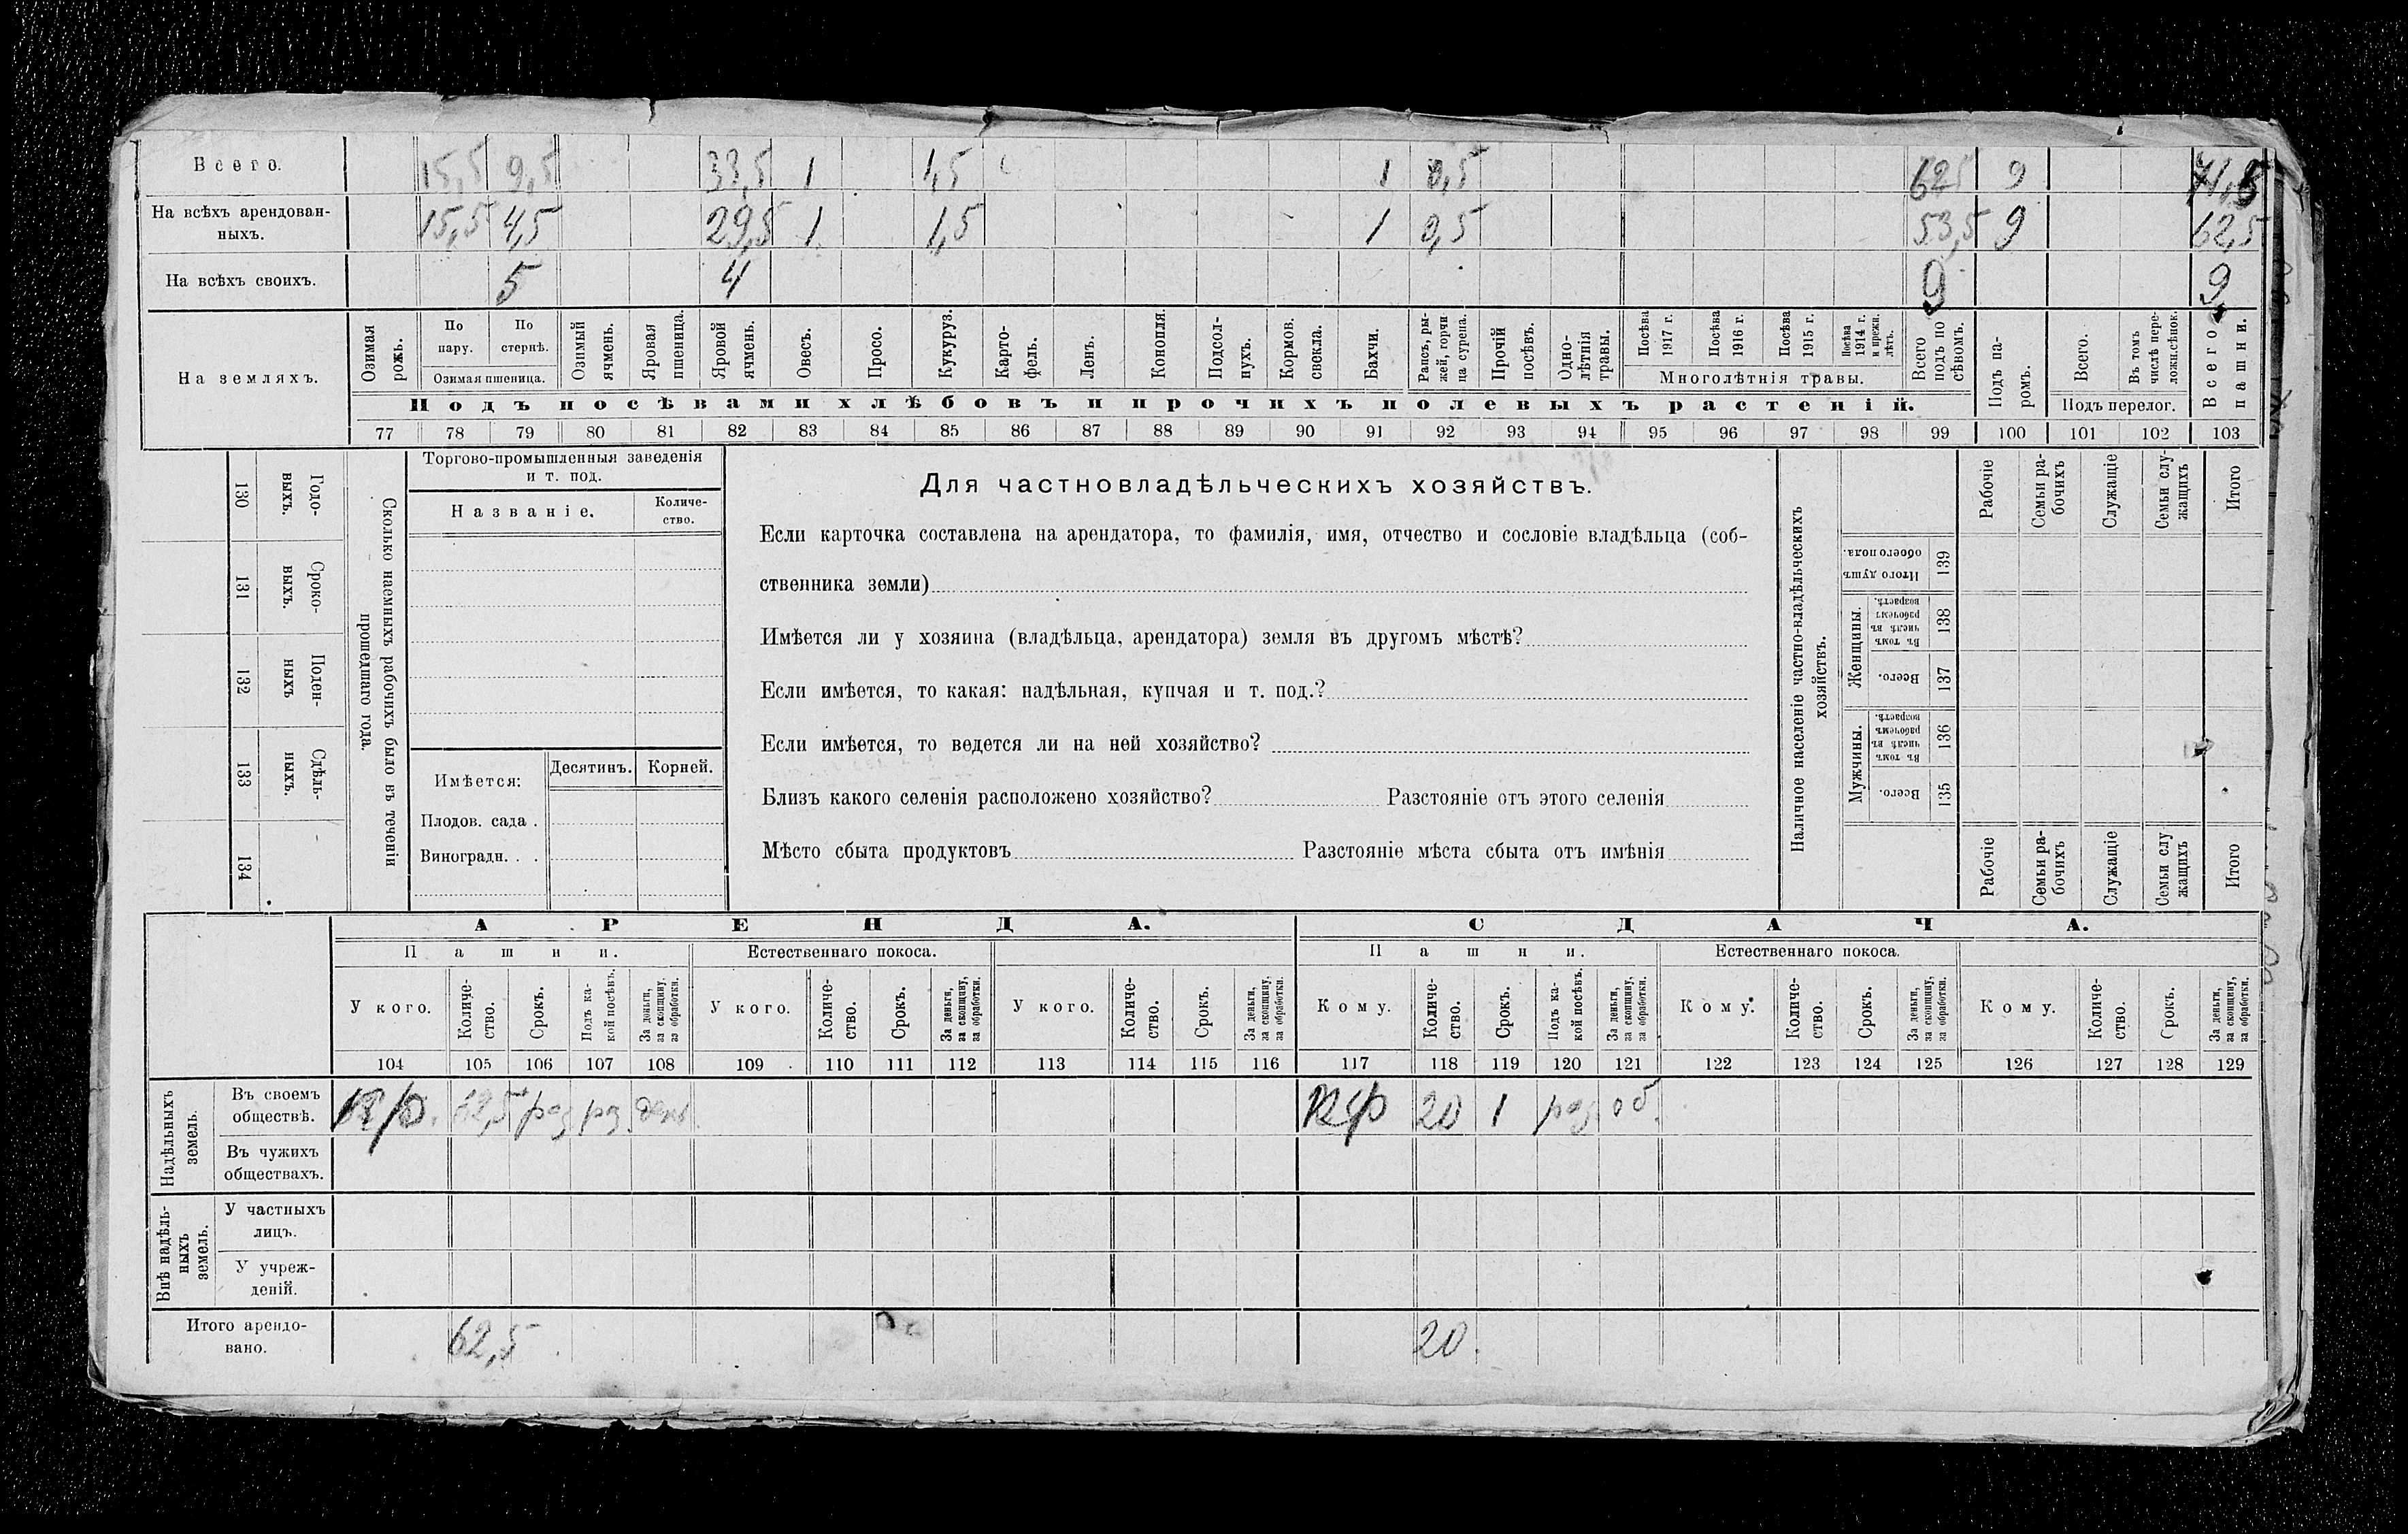 Всего. 15,5 9,5 33,5 1 1,5 1 0,5 62,5 9 71,5
На всѣхъ арендован-
ныхъ. 15,5 4,5 29,5 1 1,5 1 0,5 53,5 9 62,5
На всѣхъ своихъ. 5 4 9 9
На земляхъ.
Озимая рожь.
По пару.
По стернѣ.
Озимая пшеница.
Озимый ячмень.
Яровая пшеница.
Яровой ячмень.
Овесъ.
Просо.
Кукуруз.
Карто-
фель.
Ленъ.
Конопля.
Подсол-
нухъ.
Кормов. свекла.
Бахчи.
Рапсъ, ры-
жей, горчи
ца сурепа.
Прочій посѣвъ.
Одно-
лѣтнія травы.
Посѣва 1917 г.
Посѣва 1916 г.
Посѣва 1915 г.
Посѣва 1914 г. и прежн. лѣтъ.
Многолѣтнія травы.
Всего подъ по
сѣвомъ.
Подъ па-
ромъ.
Всего.
Въ томъ числѣ пере-
ложн.сѣнок.
Подъ перелог.
Всего пашни.
Подъ посѣвами хлѣбовъ и прочихъ полевыхъ растеній.
77 78 79 80 81 82 83 84 85 86 87 88 89 90 91 92 93 94 95 96 97 98 99 100 101 102 103
130 Годо-
выхъ.
131 Сроко-
выхъ.
132 Поден-
ныхъ
133 Сдѣль-
ныхъ.
134
Сколько наемныхъ рабочихъ было въ теченіи
прошедшаго года.
Торгово-промышленныя заведенія
и т. под.
Названіе. Количе-
ство.
Имѣется: Десятинъ. Корней.
Плодов. сада .
Виноградн. . .
Для частновладѣльческихъ хозяйствъ.
Если карточка составлена на арендатора, то фамилія, имя, отчество и сословіе владѣльца (соб-
ственника земли)
Имѣется ли у хозяина (владѣльца, арендатора) земля въ другомъ мѣстѣ?
Если имѣется, то какая: надѣльная, купчая и т. под.?
Если имѣется, то ведется ли на ней хозяйство?
Близъ какого селенія расположено хозяйство? Разстояніе отъ этого селенія
Мѣсто сбыта продуктовъ Разстояніе мѣста сбыта отъ имѣнія
Наличное населеніе частно-владѣльческихъ
хозяйствъ.
Рабочіе
Семьи ра-
бочихъ
Служащіе
Семьи слу-
жащихъ
Итого
Итого душъ
обоего пола. 139
Женщины.
Въ томъ числѣ въ рабочемъ возрастѣ. 138
Всего. 137
Мужчины.
Въ томъ числѣ въ рабочемъ возрастѣ. 136
Всего. 135
Рабочіе
Семьи ра-
бочихъ
Служащіе
Семьи слу
жащихъ
Итого
АРЕНДА. СДАЧА.
Пашни. Естественнаго покоса. Пашни. Естественнаго покоса.
У кого. Количе-
ство. Срокъ. Подъ ка-
кой посѣвъ. За деньги,
за скопщину,
за обработки.
У кого. Количе-
ство. Срокъ. За деньги,
за скопщину,
за обработки.
У кого. Количе-
ство. Срокъ. За деньги,
за скопщину,
за обработки.
Кому. Количе-
ство. Срокъ. Подъ ка-
кой посѣвъ. За деньги,
за скопщину,
за обработки.
Кому. Количе-
ство. Срокъ. За деньги,
за скопщину,
за обработки.
Кому. Количе-
ство. Срокъ. За деньги,
за скопщину,
за обработки.
104 105 106 107 108 109 110 111 112 113 114 115 116 117 118 119 120 121 122 123 124 125 126 127 128 129
Надѣльныхъ
земель.
Въ своемъ
обществѣ. 62,5 раз раз ден 20 1 раз об.
Въ чужихъ
обществахъ.
Внѣ надѣль-
ныхъ
земель.
У частныхъ
лицъ.
У учреж-
деній.
Итого арендо-
вано. 62,5 20.